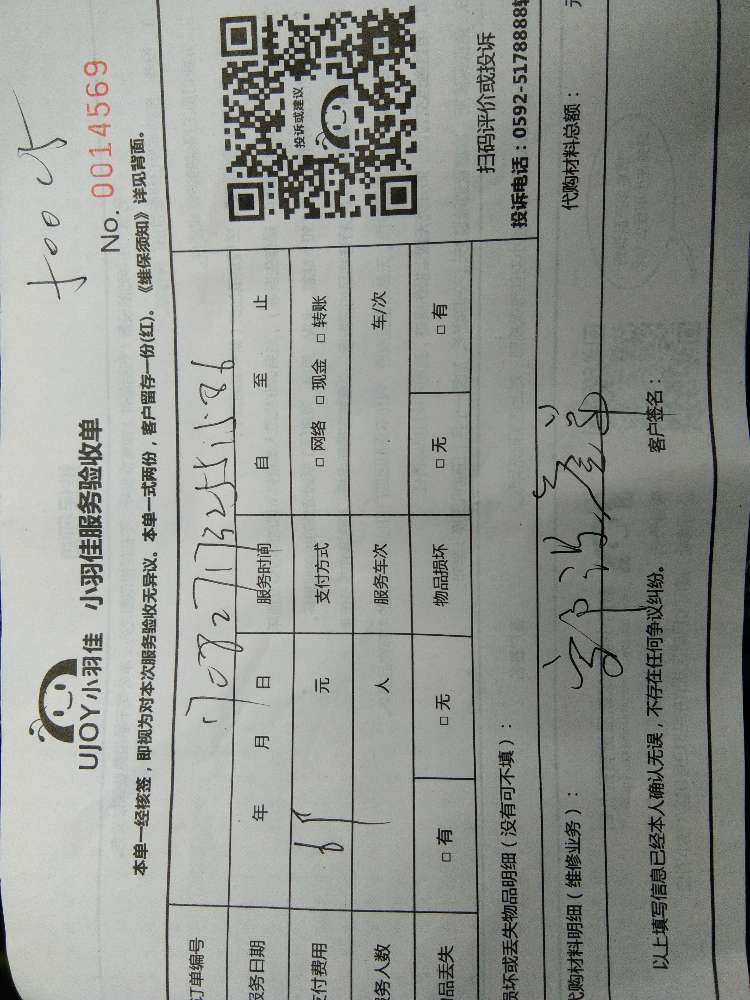 UJOY小羽佳 小羽佳服务验收单
No. 0014569
本单一经核签，即视为对本次服务验收无异议。本单一式两份，客户留存一份(红)。《维保须知》详见背面。
订单编号
服务日期 年 月 日 服务时间 自 至 止
支付费用 元 支付方式 □ 网络 □ 现金 □ 转账
服务人数 人 服务车次 车/次
物品丢失 □ 有 □ 无 物品损坏 □ 无 □ 有
投诉或建议
扫码评价或投诉
投诉电话：0592-5178888转
损坏或丢失物品明细（没有可不填）：
代购材料明细（维修业务）： 代购材料总额： 元
以上填写信息已经本人确认无误，不存在任何争议纠纷。 客户签名：